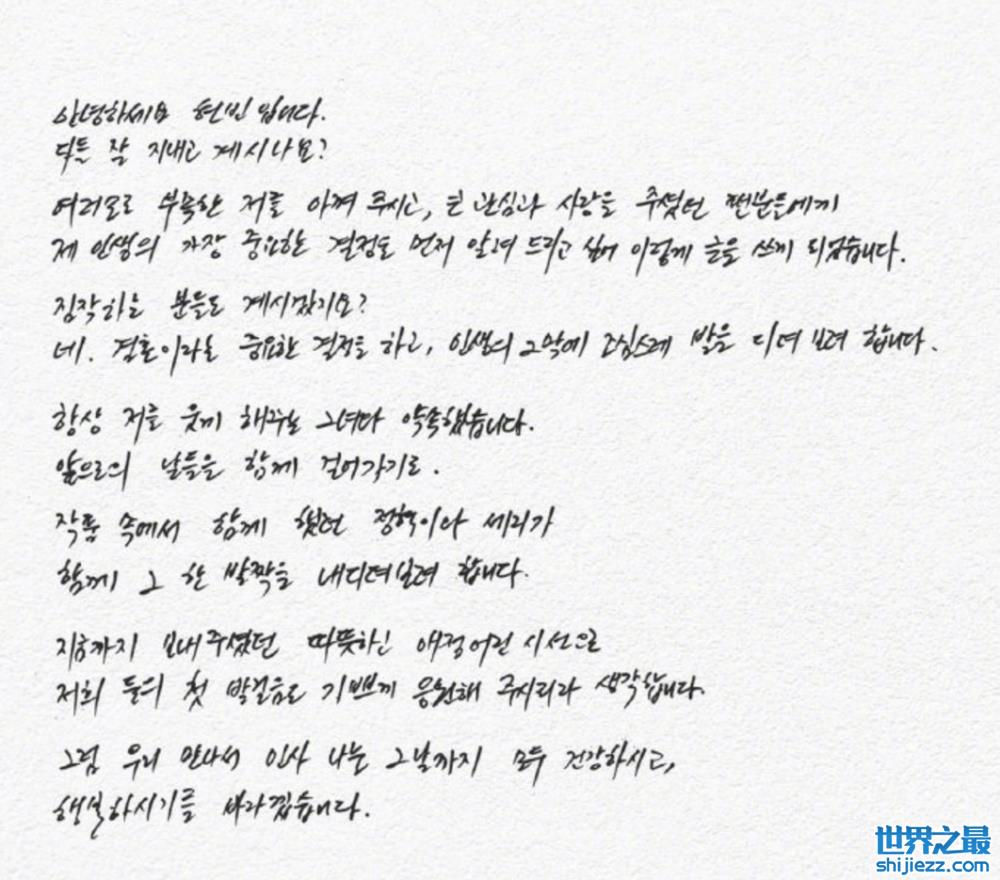 안녕하세요 현빈입니다.
다들 잘 지내고 계시나요?
여러모로 부족한 저를 아껴 주시고, 큰 관심과 사랑을 주셨던 팬분들에게
제 인생의 가장 중요한 결정을 먼저 알려 드리고 싶어 이렇게 글을 쓰게 되었습니다.
짐작하는 분들도 계시겠지요?
네. 결혼이라는 중요한 결정을 하고, 인생의 2막에 조심스레 발을 디뎌 보려 합니다.
항상 저를 웃게 해주는 그녀와 약속했습니다.
앞으로의 날들을 함께 걸어가기로.
작품 속에서 함께 했던 정혁이와 세리가
함께 그 한 발짝을 내디뎌보려 합니다.
지금까지 보내주셨던 따뜻하신 애정어린 시선으로
저희 둘의 첫 발걸음도 기쁘게 응원해 주시리라 생각합니다.
그럼 우리 만나서 인사 나눌 그날까지 모두 건강하시고,
행복하시기를 바라겠습니다.
世界之最
shijiezz.com